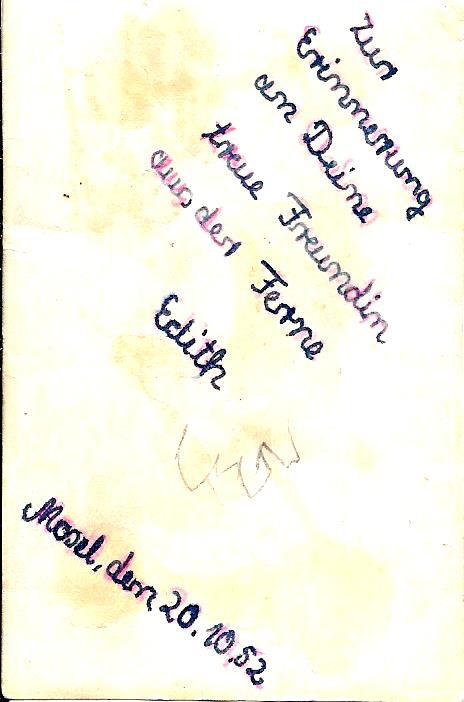 Zur
Erinnerung
an Deine
treue Freundin
aus der Ferne
Edith
Mosel, den 20.10.52